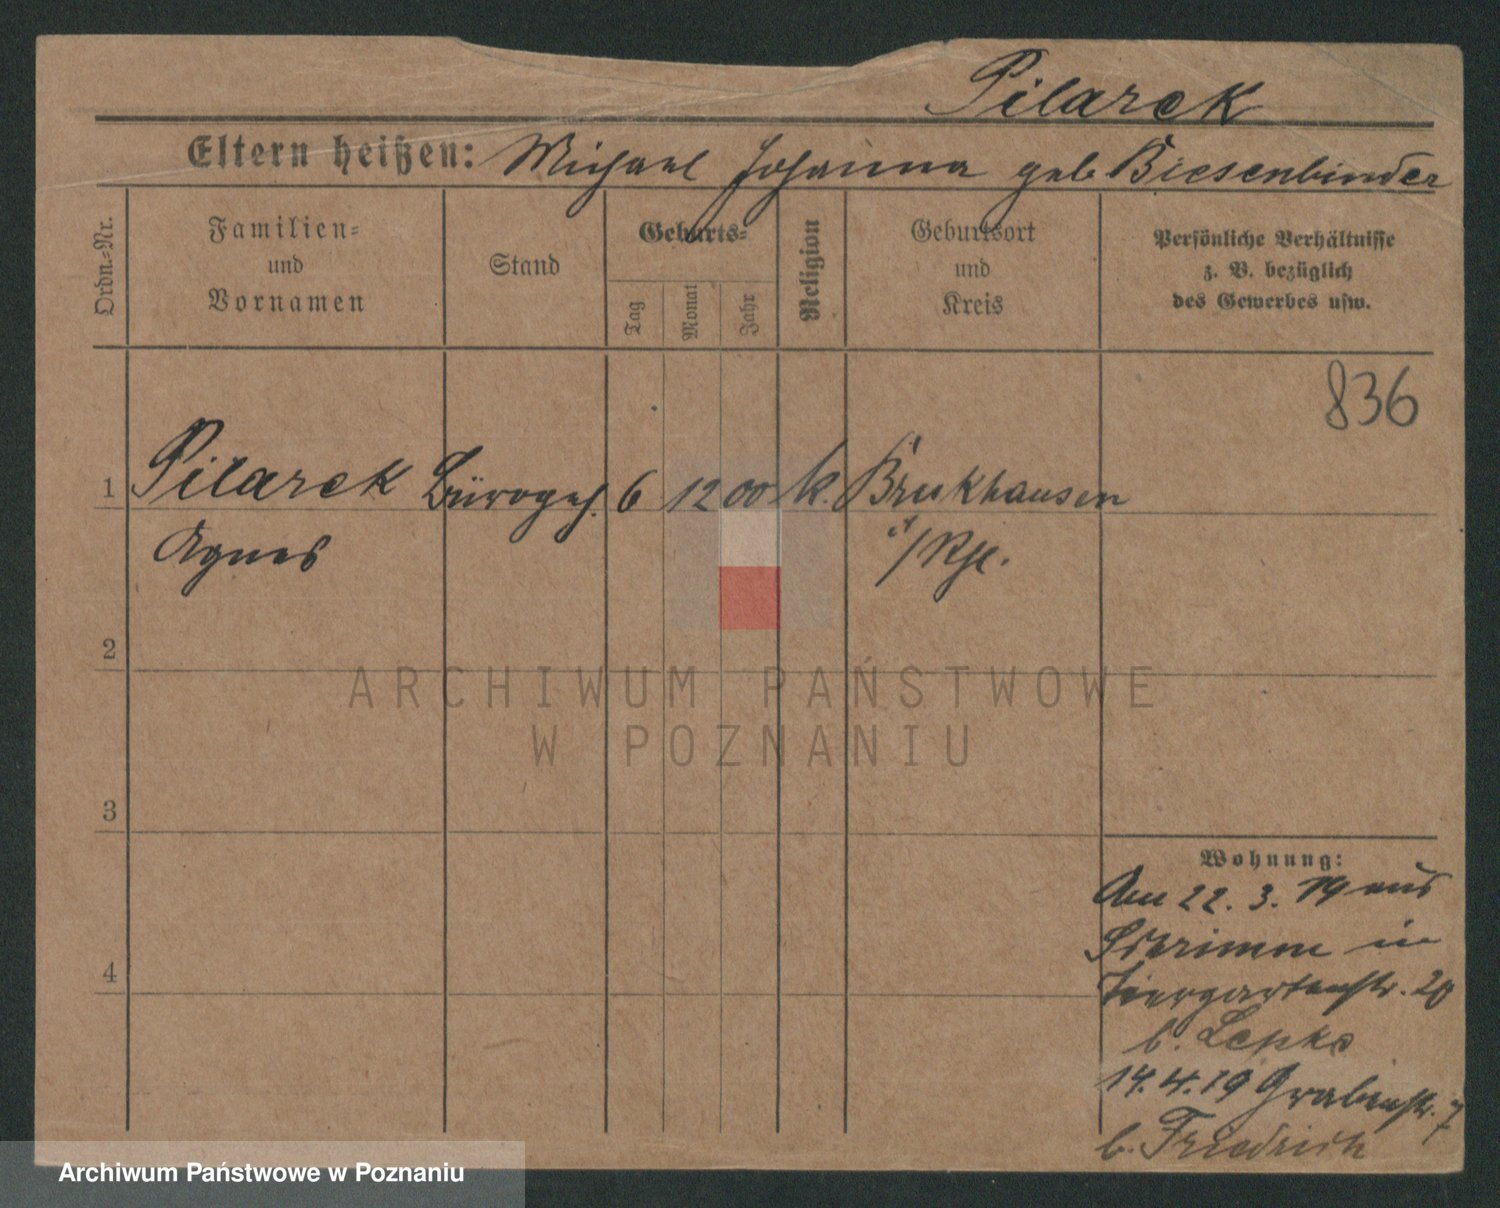 Pilarek
Eltern heißen: Michael Johanna geb Biesenbinder
Ordn.=Nr.
Familien=
und
Vornamen
Stand
Geburts=
Tag
Monat
Jahr
Religion
Geburtsort
und
Kreis
Persönliche Verhältnisse
z. B. bezüglich
des Gewerbes usw.
836
1 Pilarek Bürogeh. 6 12 00 k. Bruckhausen
Agnes
2
3
4
Wohnung:
Am 22. 3. 19 aus
Schrimm in
Tiergartenstr. 20
b. Lepke
14. 4. 19 Grabenstr. 7
b. Friedrich
ARCHIWUM PAŃSTWOWE
W POZNANIU
Archiwum Państwowe w Poznaniu